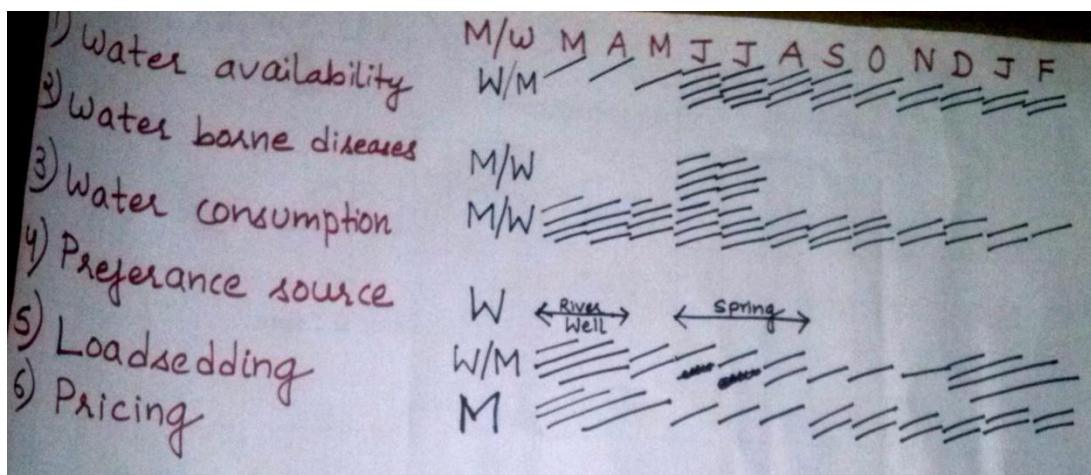 M/W M A M J J A S O N D J F
1) Water availability W/M
2) Water borne diseases M/W
3) Water consumption M/W
4) Preferance source W River Well Spring
5) Loadsedding W/M
6) Pricing M